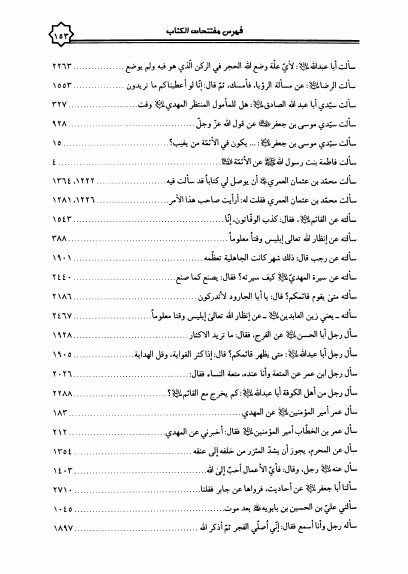 فهرس مفتتحات الكتاب
١٥٣
سألت أبا عبدالله ﷷ: لأيّ علّة وضع الله الحجر في الركن الّذي هو فيه ولم يوضع ٢٢٦٣
سألت الرضا: عن مسألة الرؤيا، فأمسك، ثمّ قال: إنّا لو أعطيناكم ما تريدون ١٥٥٣
سألت سيّدي أبا عبد الله الصادق: هل للمأمول المنتظر المهدي وقت ٣٢٧
سألت سيّدي موسى بن جعفر عن قول الله عزّ وجلّ ٩٢٨
سألت سيّدي موسى بن جعفر: ... يكون في الأئمّة من يغيب؟ ١٥
سألت فاطمة بنت رسول الله ﷺ عن الأئمّة ٤
سألت محمّد بن عثمان العمري أن يوصل لي كتاباً قد سألت فيه ١٢٢٢، ١٣٦٤
سألت محمّد بن عثمان العمري فقلت له: أرأيت صاحب هذا الأمر ١٢٢٦، ١٢٨١
سألته عن القائم، فقال: كذب الوقّاتون، إنّا ١٥٤٣
سألته عن إنظار الله تعالى إبليس وقتاً معلوماً ٣٨٨
سألته عن رجب قال: ذلك شهر كانت الجاهلية تعظّمه ١٩٠١
سألته عن سيرة المهديّ كيف سيرته؟ فقال: يصنع كما صنع ٢٤٤٠
سألته متىٰ يقوم قائمكم؟ قال: يا أبا الجارود لا تدركون ٢١٨٦
سألته ـ يعني زين العابدين ـ عن إنظار الله تعالىٰ إبليس وقتا معلوماً ٢٤٦٧
سأل رجل أبا الحسن عن الفرج، فقال: ما تريد الاكثار ١٩٢٨
سأل رجل أبا عبدالله: متى يظهر قائمكم؟ قال: إذا كثر الغواية، وقل الهداية ١٩٠٥
سأل رجل ابن عمر عن المتعة وأنا عنده، متعة النساء فقال: ٢٠٢٦
سأل رجل من أهل الكوفة أبا عبدالله: كم يخرج مع القائم؟ ٢٢٨٨
سأل عمر أمير المؤمنين عن المهدي ١٨٣
سأل عمر بن الخطّاب أمير المؤمنين فقال: أخبرني عن المهدي ٢١٢
سأل عن المحرم، يجوز أن يشدّ المئزر من خلفه إلى عنقه ١٣٥٤
سأل عنه رجل، وقال: فأيّ الأعمال أحبّ إلى الله ١٤٠٣
سألنا أبا جعفر عن أحاديث، فرواها عن جابر فقلنا ٢٧١٠
سألني عليّ بن الحسين بن بابويه بعد موت ١٠٤٥
سأله رجل وأنا أسمع فقال: إنّي أُصلّي الفجر ثمّ أذكر الله ١٨٩٧